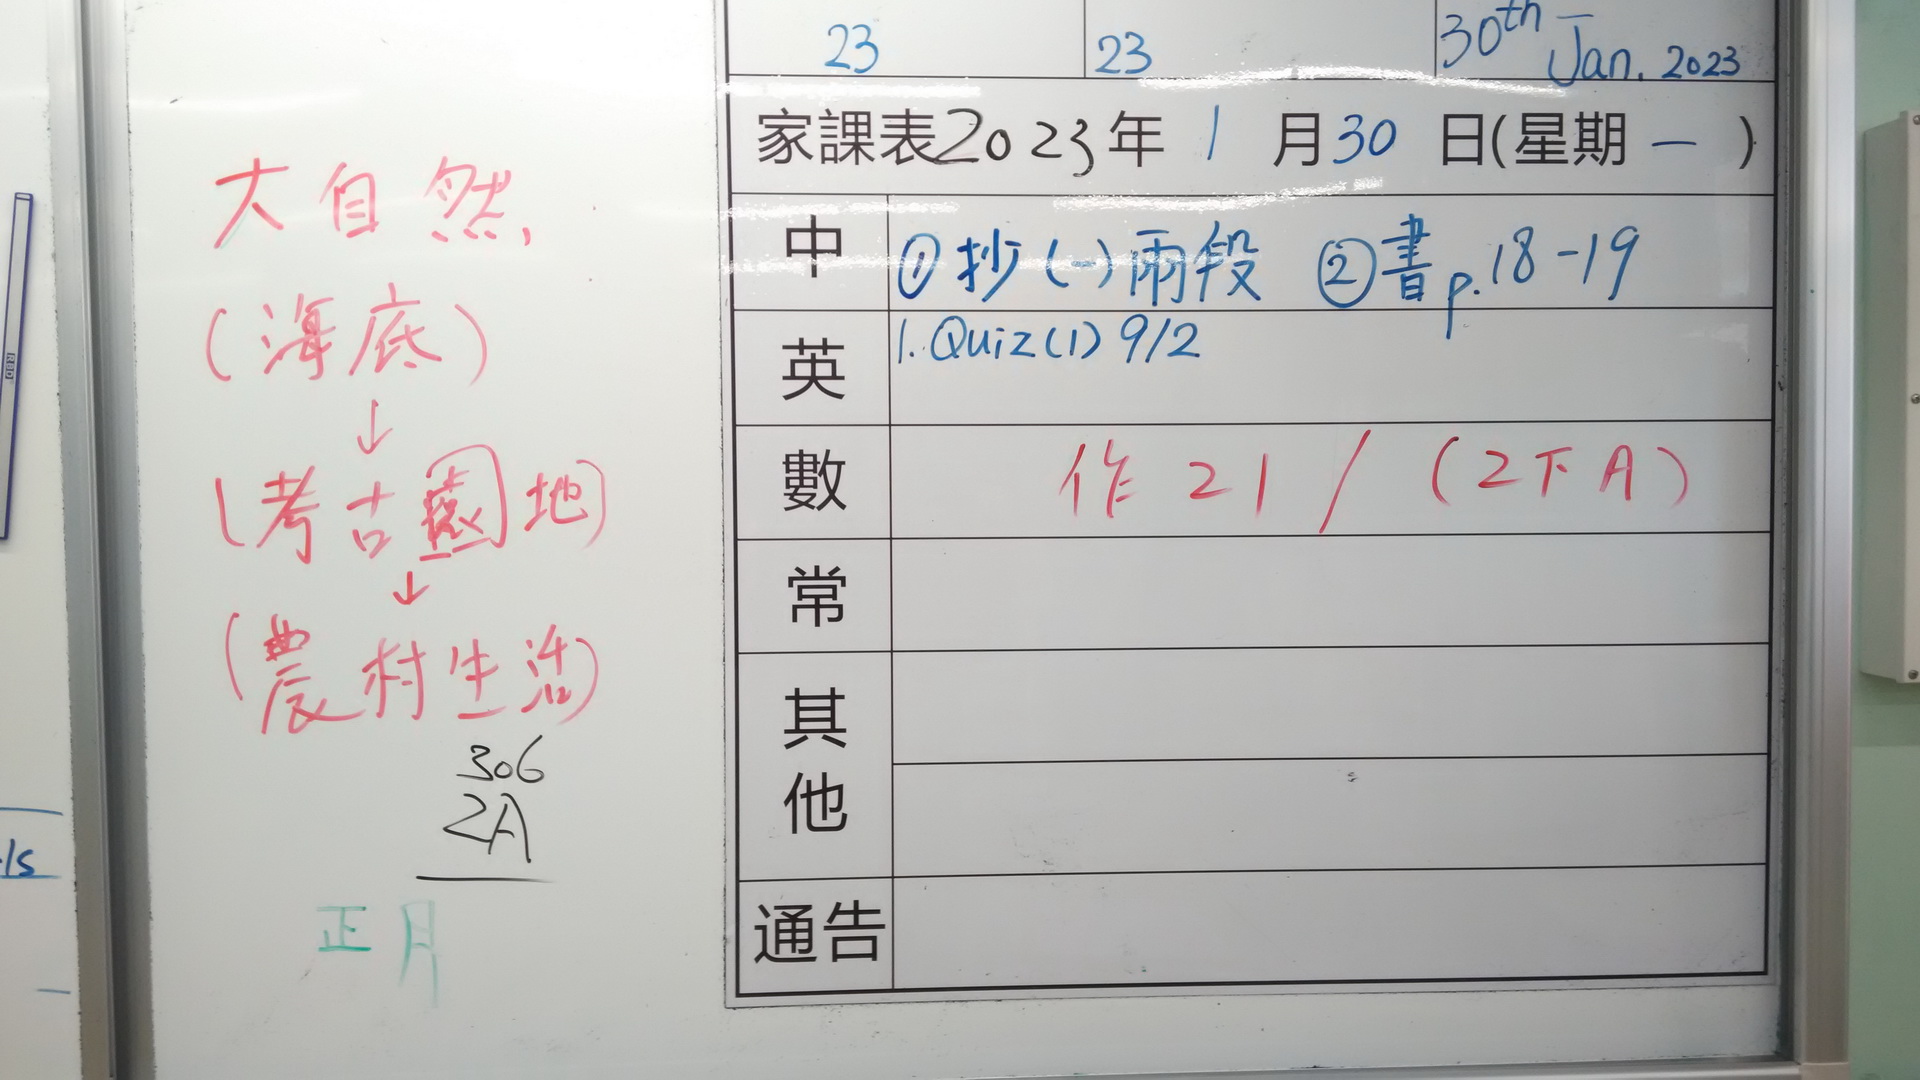 23 23 30th Jan. 2023
家課表2023年1月30日(星期一)
中 ①抄(一)兩段 ②書p.18-19
英 1. Quiz(1) 9/2
數 作21/(2下A)
常
其他
通告
大自然,
(海底)
↓
(考古園地)
↓
(農村生活)
306
2A
正月